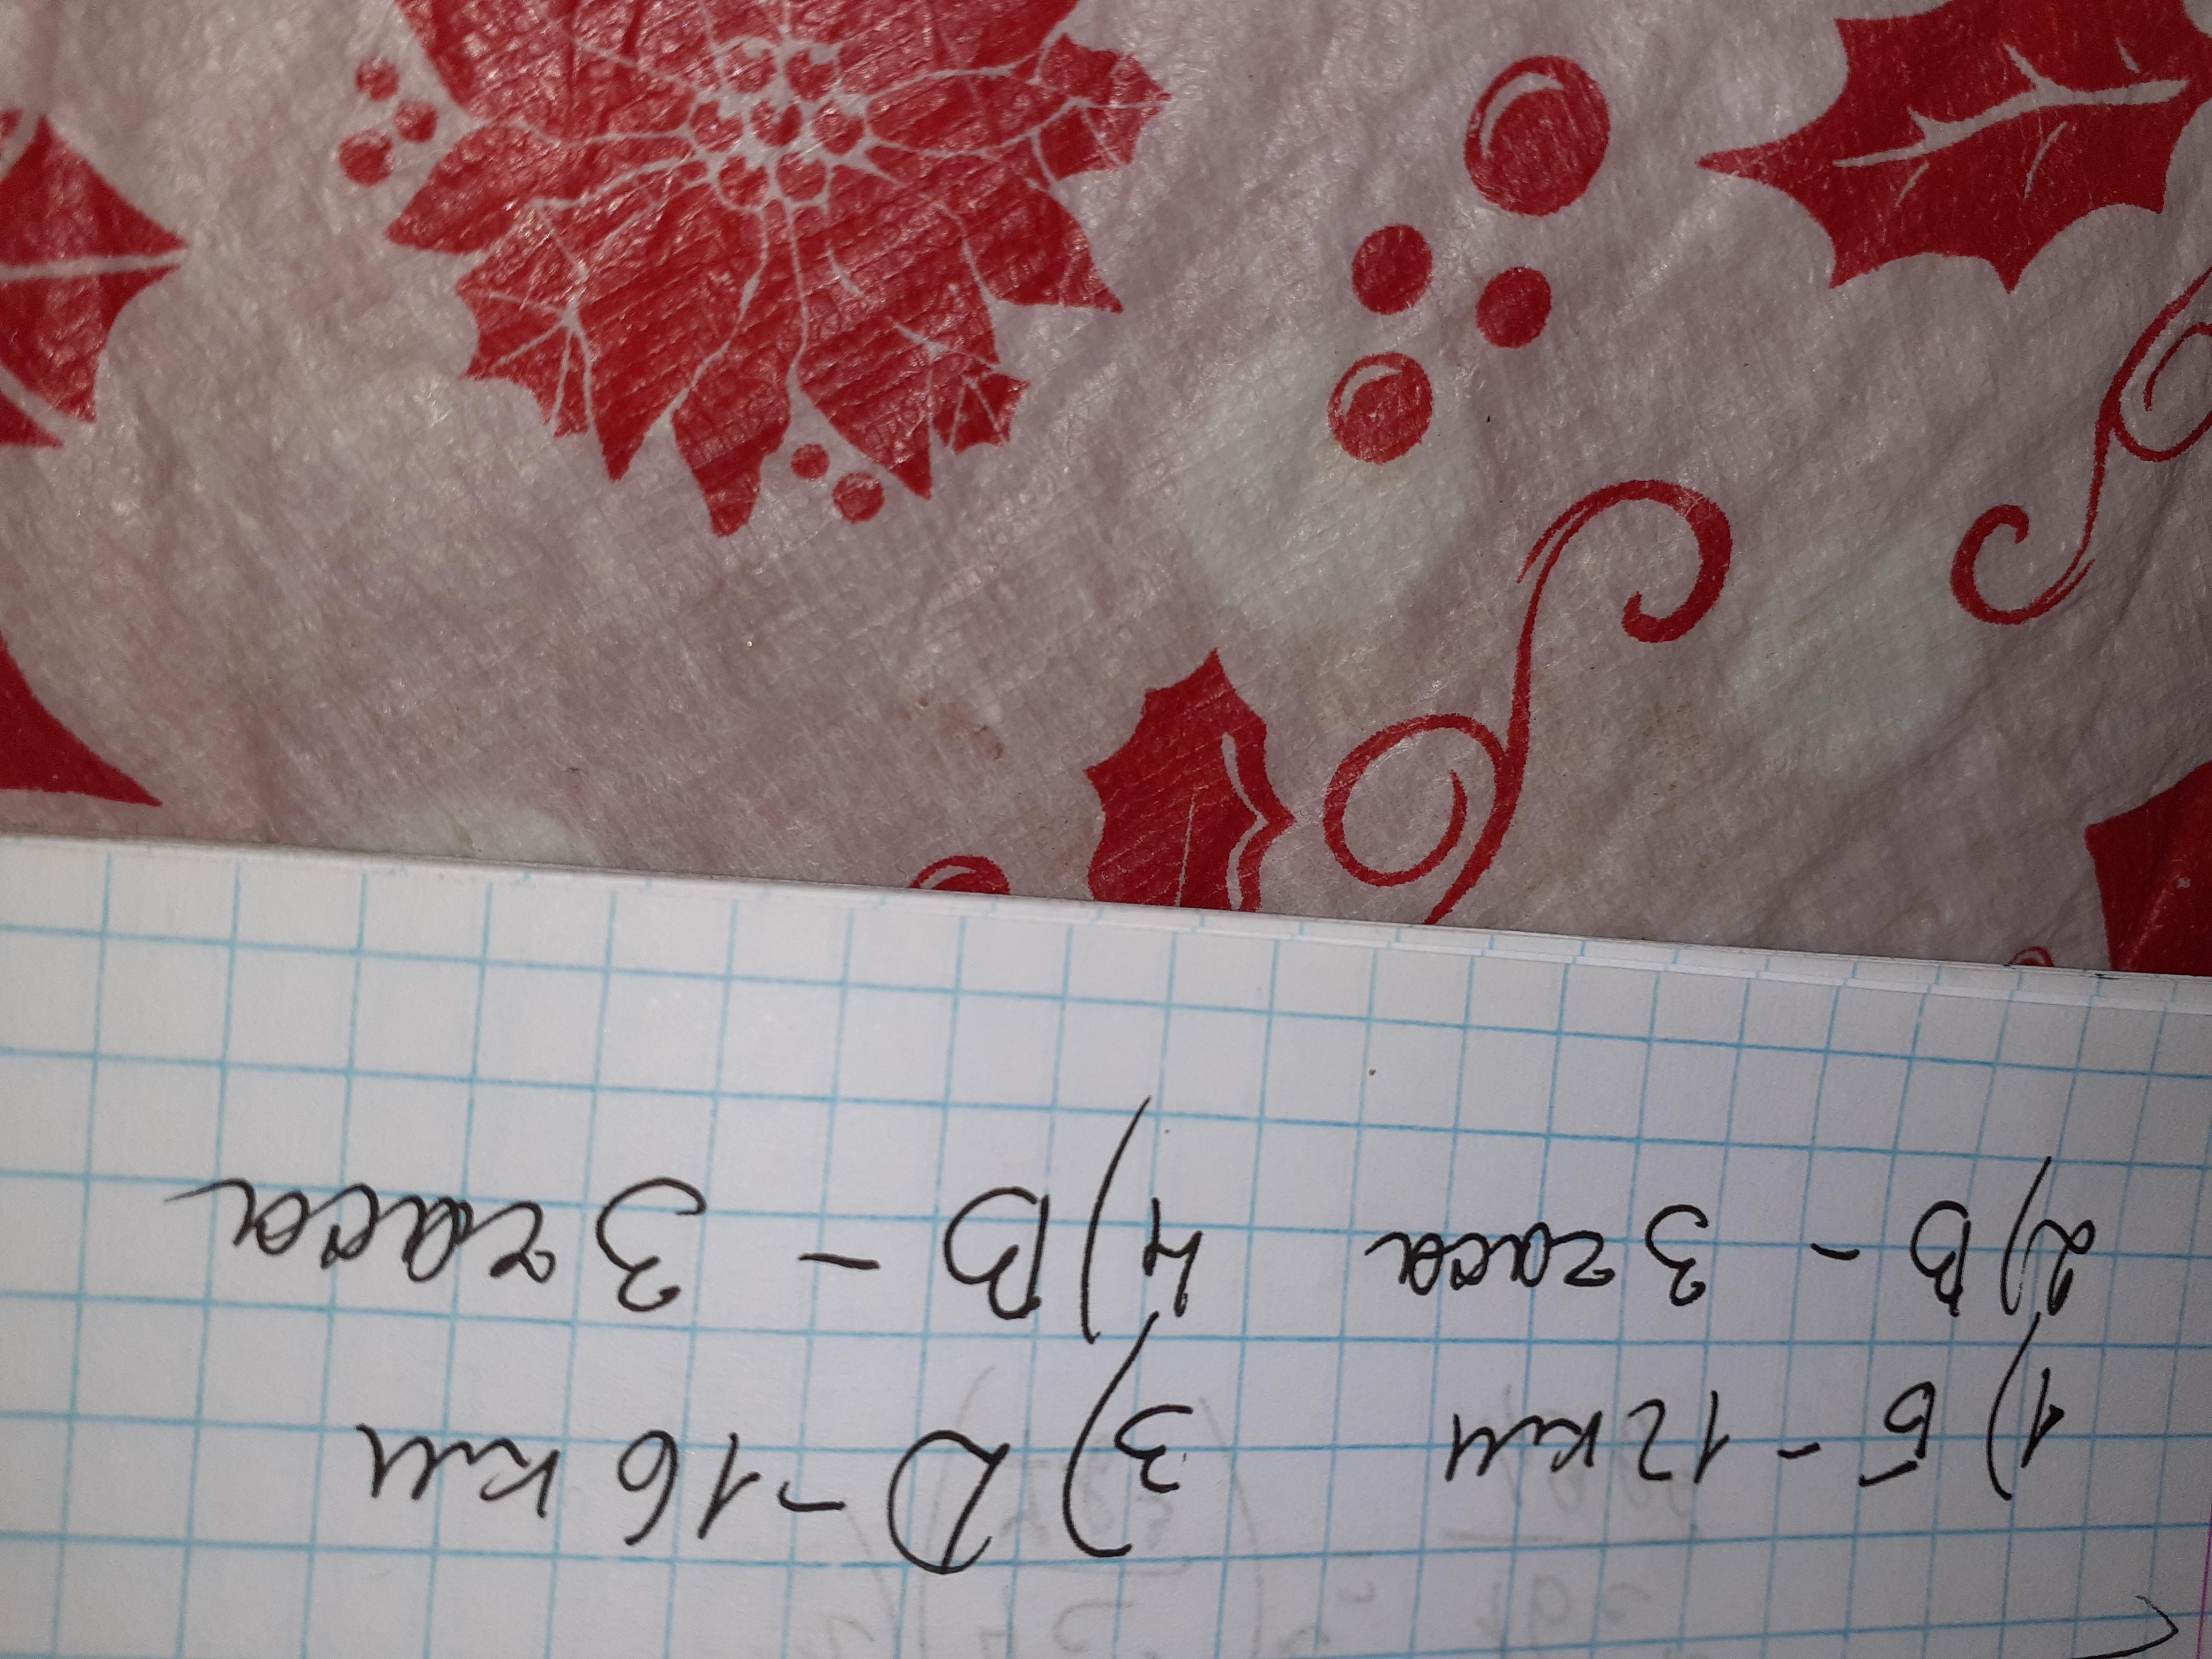 1) Б - 12 км 3) D - 16 км
2) В - 3 часа 4) В - 3 часа